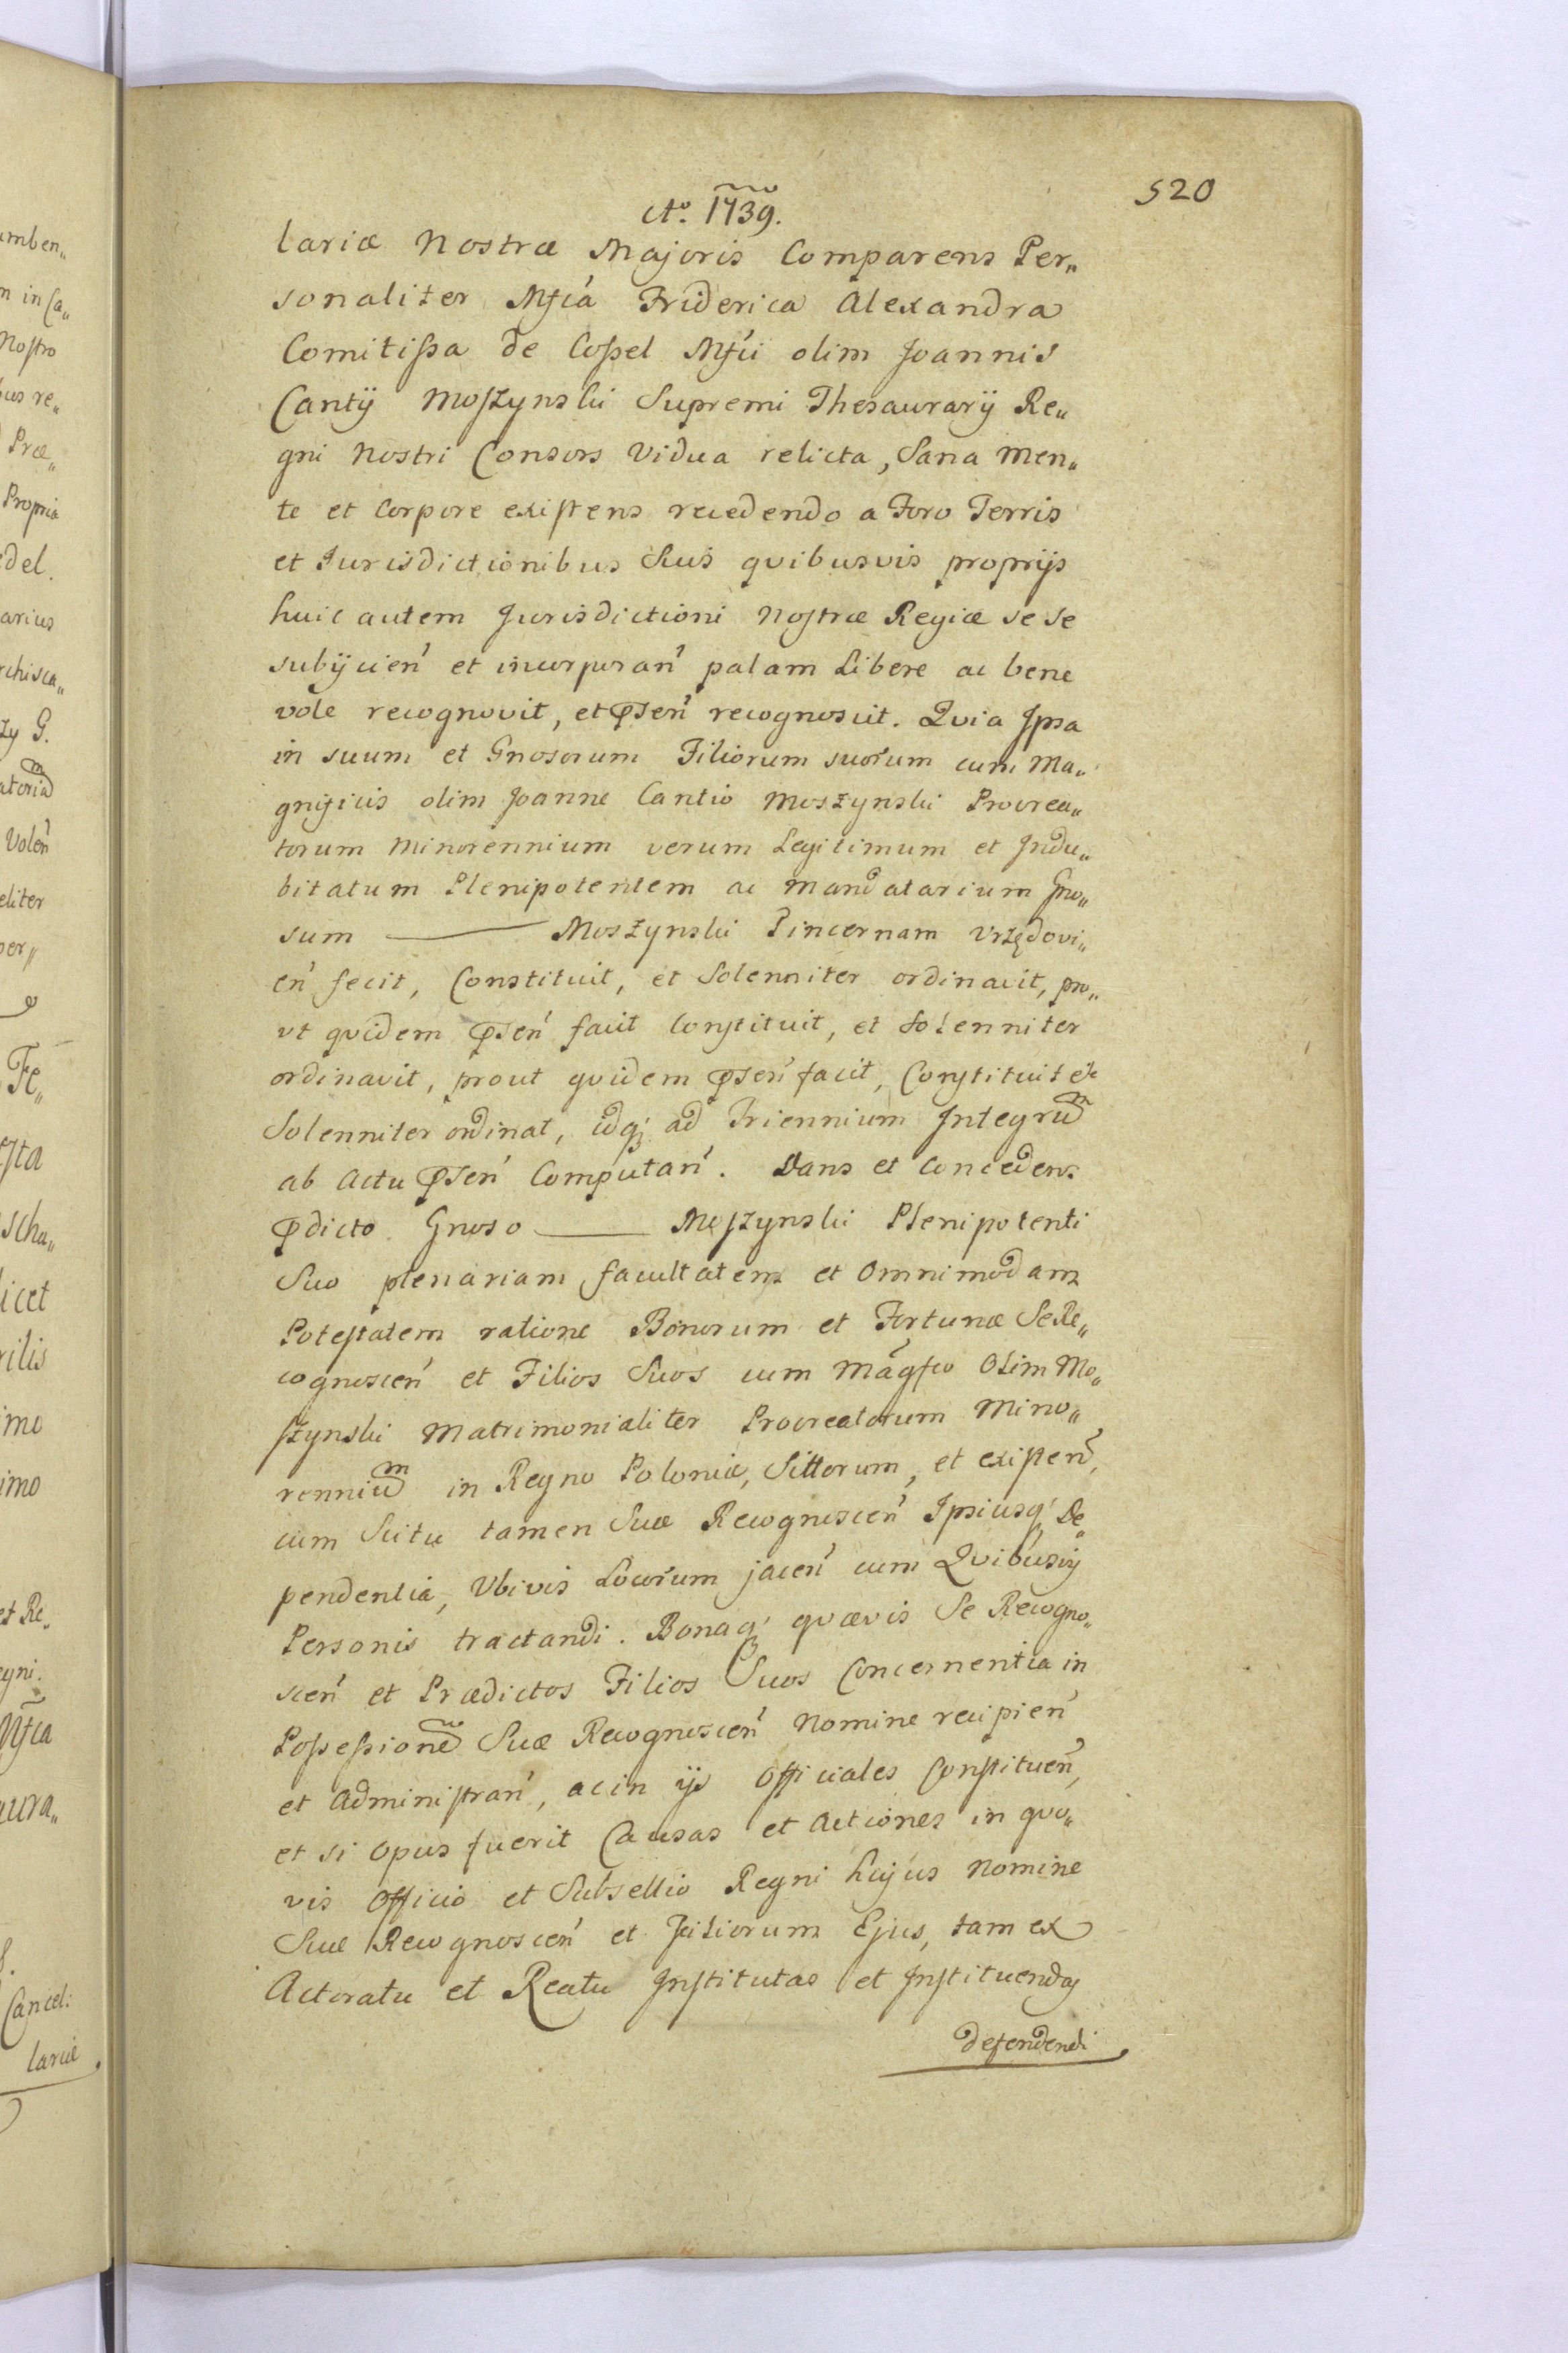 520
Ao. 1739.
lariæ Nostræ Majoris Comparens Per„
sonaliter Mfca Friderica Alexandra
Comitißa de Coßel Mfci olim Joannis
Cantij Moszynski Supremi Thesaurarij Re„
gni Nostri Consors Vidua relicta, Sana men„
te et Corpore existens recedendo a Foro Terris
et Jurisdictionibus Suis quibusvis proprijs
huic autem Jurisdictioni Nostræ Regiæ se se
subijcien̄ et incorporan̄ palam Libere ac bene
vole recognovit, et ꝓsen̄ recognoscit. Quia Ipsa
in suum et Gnosorum Filiorum suorum cum Ma„
gnificis olim Joanne Cantio Moszynski Procrea„
torum Minorennium verum Legitimum et Indu„
bitatum Plenipotentem ac Mandatarium Gno„
sum ——— Moszynski Pincernam Vrzędovi„
en̄ fecit, Constituit, et Solenniter ordinavit, pro„
ut quidem ꝓsen̄ facit Constituit, et Solenniter
ordinavit, prout quidem ꝓsen̄ facit, Constituit et
Solenniter ordinat, idq; ad Triennium Integrum
ab Actu ꝓsen̄ Computan̄. Dans et Concedens
ꝓdicto Gnoso ——— Moszynski Plenipotenti
Suo plenariam facultatem et Omnimodam
Potestatem ratione Bonorum et Fortunæ Se Re„
cognoscen̄ et Filios Suos cum Magfco Olim Mo„
szynski Matrimonialiter Procreatorum Mino„
rennium in Regno Poloniæ, Sittorum, et existen̄,
cum Scitu tamen Suæ Recognoscen̄ Ipsiusq; De„
pendentia, Ubivis Locorum jacen̄ cum Quibusvis
Personis tractandi. Bonaq; quævis Se Recogno„
scen̄ et Prædictos Filios Suos Concernentia in
Poßeßionem Suæ Recognoscen̄ Nomine recipien̄
et Administran̄, ac in ijs Officiales Constituen̄,
et si opus fuerit Causas et Actiones in quo„
vis Officio et Subsellio Regni hujus Nomine
Suæ Recognoscen̄ et Filiorum Ejus, tam ex
Actoratu et Reatu Institutas et Instituendas
defendendi